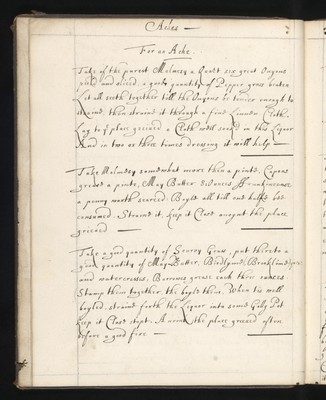 Aches
For an Ache
Take of the purest Malmsey a Quart six great Onyons
pild and sliced a good quantity of Pepper gross beaten
let all seeth together till the Onyons be tender enough to
straine, then straine it through a fine Linnen Cloth.
Lay to ye place greived a Cloth well soked in this Liquor
And in two or three times dressing it will help
Take Malmsey somewhat more then a pinte, Capons
grease a pinte, May Butter 2 ounces Frankincense
a penny worth searced Boyle all till one halfe bee
consumed. Straine it, keep it Close anoynt the place
greived
Take a good quantity of Scurvy Grass, put thereto a
good quantity of May Butter, Bledlyme, Brooklime
and watercresses, Barrows grease each three ounces.
Stamp them together, the boyle them, When tis well
boyled, straine forth the Liquor into some Gally Pot
keep it Close stopt. Anoint the place greived often
before a good fire